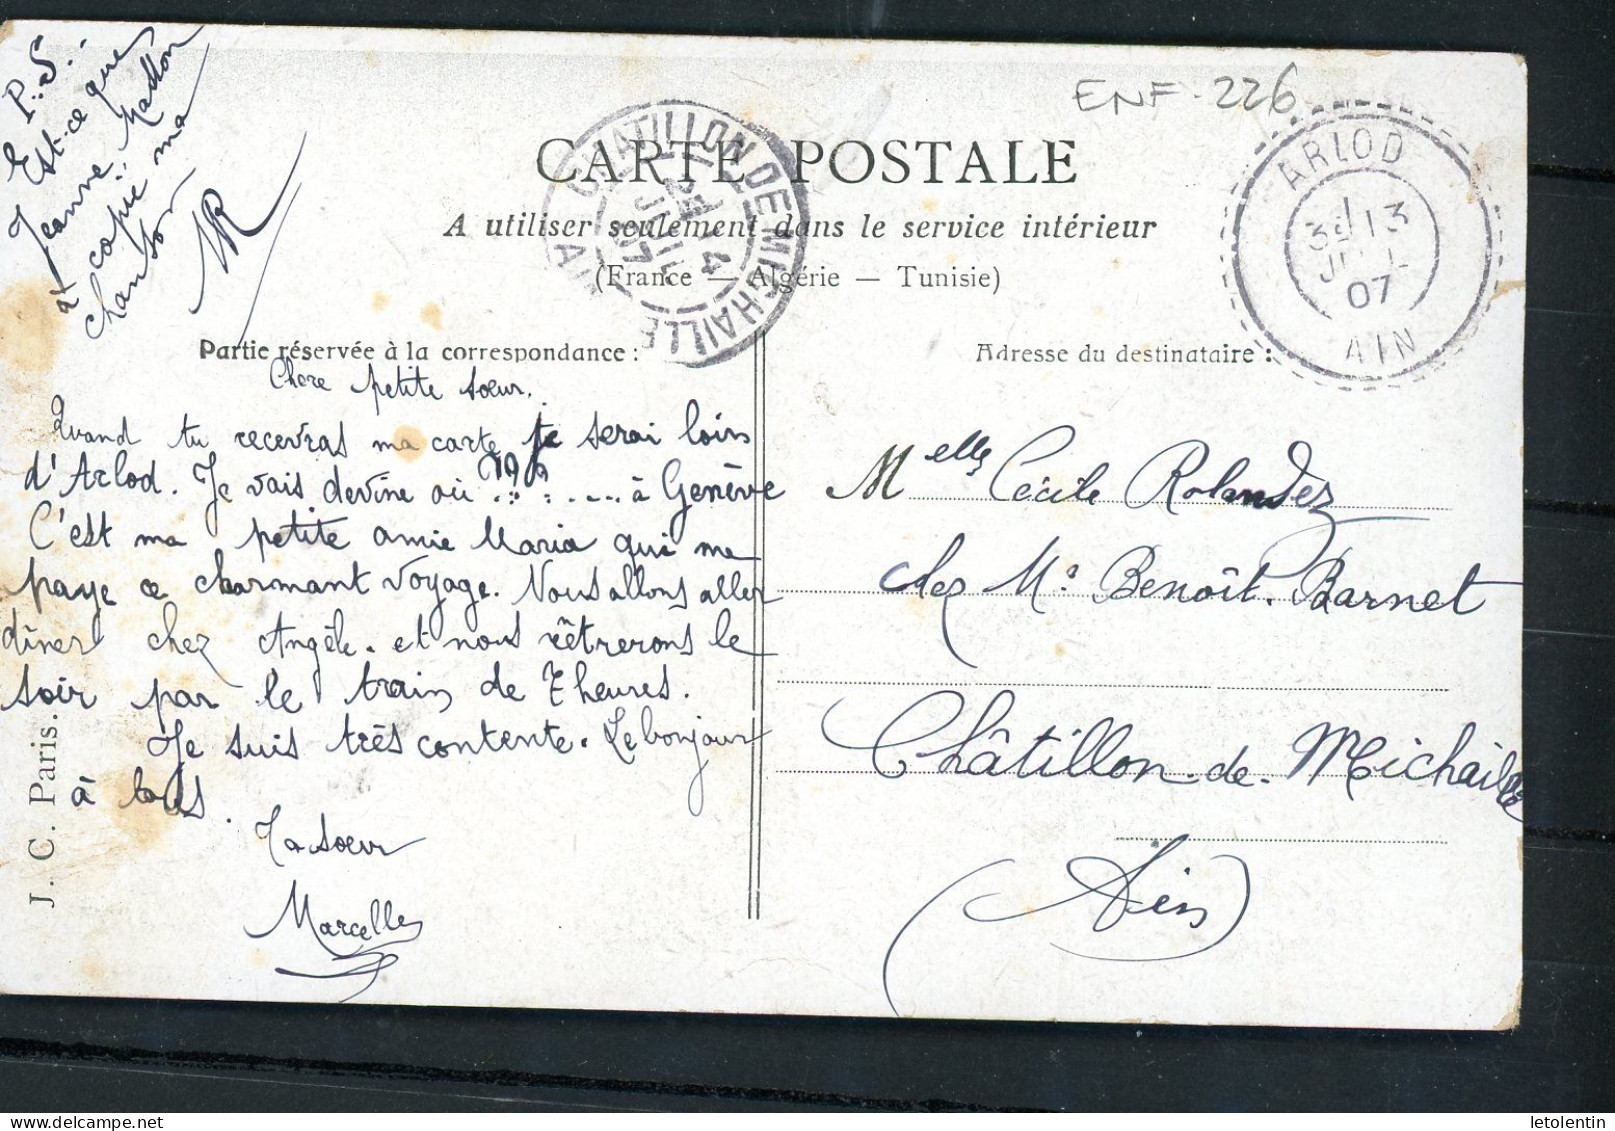 P.S.:
Est-ce que
Jeanne Mathon
a copié ma
chanson
MR
ENF-226
CARTE POSTALE
A utiliser seulement dans le service intérieur
(France — Algérie — Tunisie)
CHATILLON DE MICHAILLE
14
JUIL
07
AIN
ARLOD
13
JUIL
07
AIN
Partie réservée à la correspondance :
Adresse du destinataire :
Chere petite soeur.
Quand tu recevras ma carte je serai loin
d'Arlod. Je vais devine où ??? ..... à Genève
C'est ma petite amie Maria qui me
paye ce charmant voyage. Nous allons aller
dîner chez Angèle. et nous rêtrerons le
soir par le train de 7 heures.
Je suis très contente. Le bonjour
à tous.
Ta soeur
Marcelle
Melle Cécile Rolandez
chez Mr Benoît. Barnet
Châtillon-de-Michaille
(Ain)
J. C. Paris.
letolentin